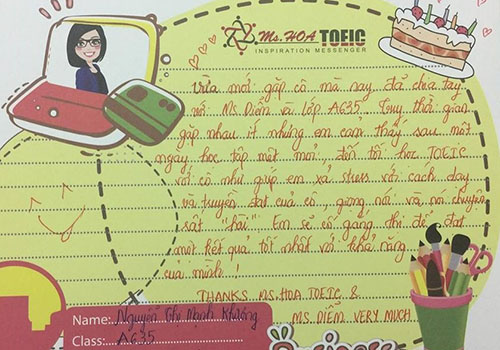 Ms. HOA TOEIC
INSPIRATION MESSENGER
Vừa mới gặp cô mà nay đã chia tay
với Ms Diễm và lớp A635. Tuy thời gian
gặp nhau ít nhưng em cảm thấy sau một
ngày học tập mệt mỏi, đến tối học TOEIC
với cô như giúp em xả stress với cách dạy
và truyền đạt của cô, giọng nói và nói chuyện
rất "hài". Em sẽ cố gắng thi để đạt
một kết quả tốt nhất với khả năng
của mình!
THANKS MS. HOA TOEIC &
MS DIỄM VERY MUCH
Name: Nguyễn Thị Mạnh Khương
Class: A635